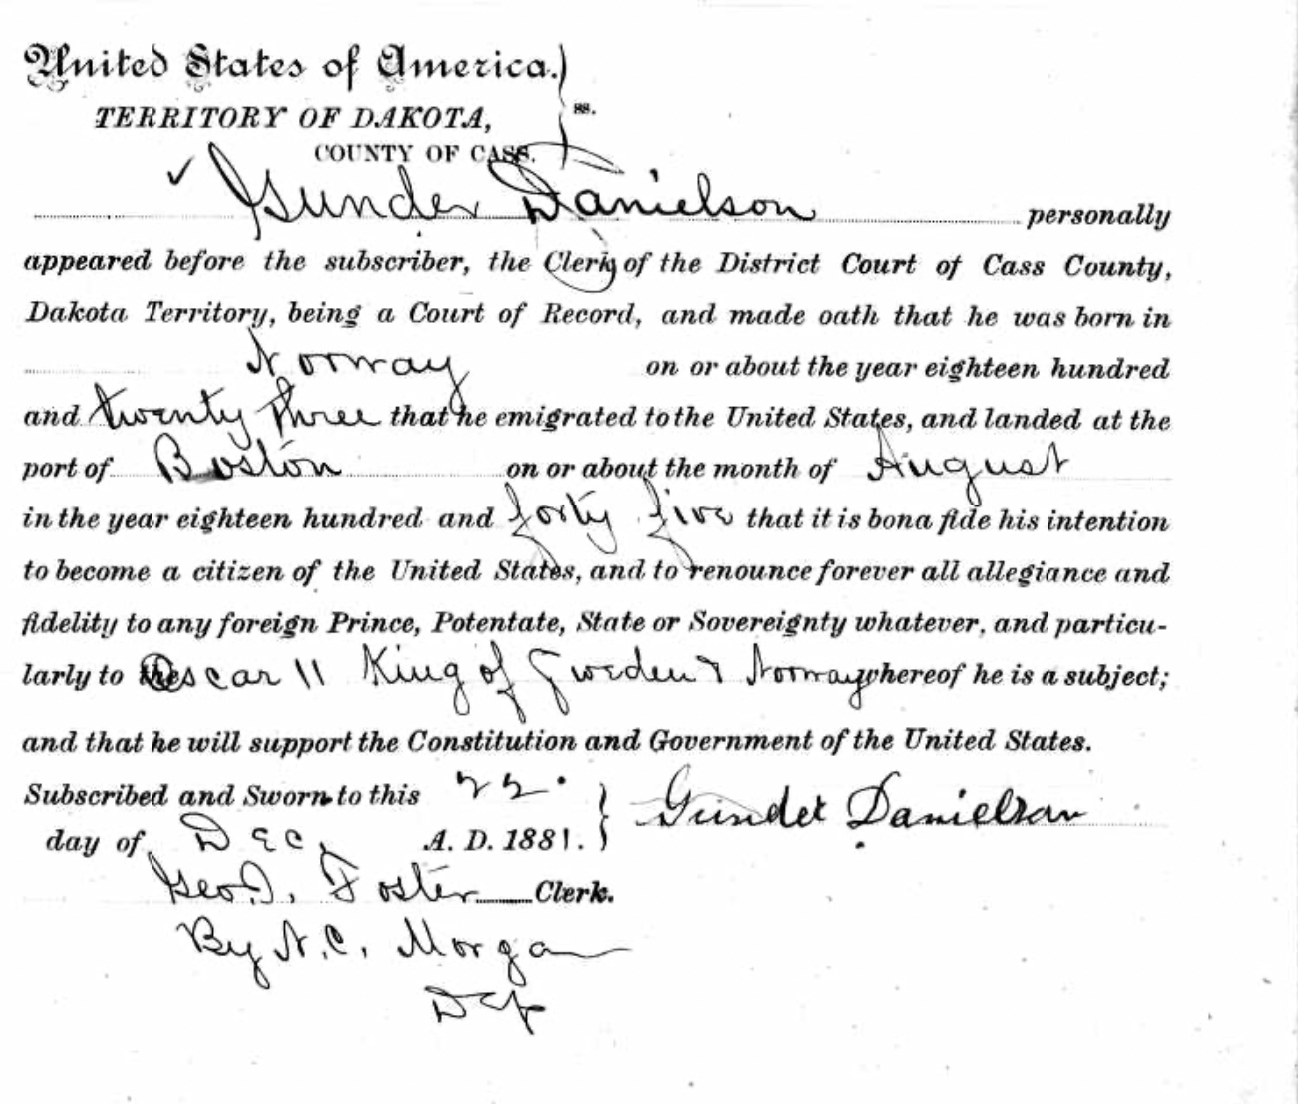 United States of America.)
TERRITORY OF DAKOTA, ss.
COUNTY OF CASS.
✓ Gunder Danielson personally
appeared before the subscriber, the Clerk of the District Court of Cass County,
Dakota Territory, being a Court of Record, and made oath that he was born in
Norway on or about the year eighteen hundred
and twenty three that he emigrated to the United States, and landed at the
port of Boston on or about the month of August
in the year eighteen hundred and forty five that it is bona fide his intention
to become a citizen of the United States, and to renounce forever all allegiance and
fidelity to any foreign Prince, Potentate, State or Sovereignty whatever, and particu-
larly to the Oscar II King of Sweden & Norway whereof he is a subject;
and that he will support the Constitution and Government of the United States.
Subscribed and Sworn to this 22. } Gunder Danielson
day of Dec, A. D. 1881.
Geo. I. Foster Clerk.
By N. C. Morgan
Dep